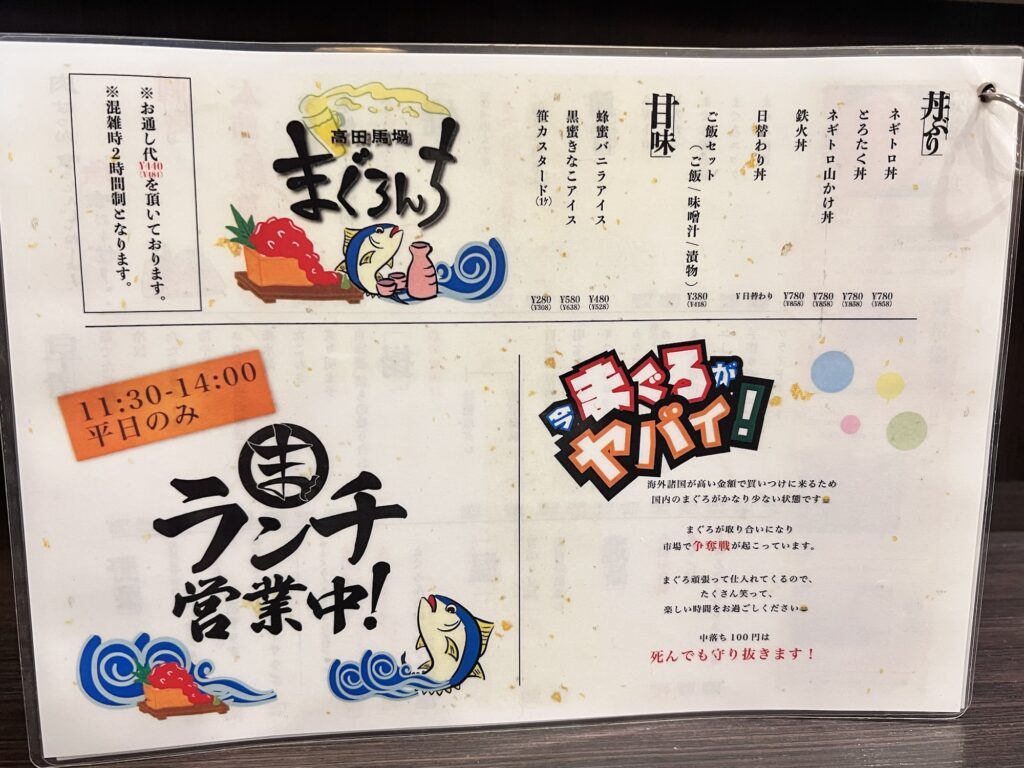 丼ぶり
ネギトロ丼 ¥780 (¥858)
とろたく丼 ¥780 (¥858)
ネギトロ山かけ丼 ¥780 (¥858)
鉄火丼 ¥780 (¥858)
日替わり丼 ¥日替わり
ご飯セット
(ご飯/味噌汁/漬物) ¥380 (¥418)
甘味
蜂蜜バニラアイス ¥480 (¥528)
黒蜜きなこアイス ¥580 (¥638)
笹カスタード(1ケ) ¥280 (¥308)
高田馬場
まぐろんち
※お通し代¥440(¥484)を頂いております。
※混雑時2時間制となります。
11:30-14:00
平日のみ
ま
ランチ
営業中!
今まぐろが
ヤバイ!
海外諸国が高い金額で買いつけに来るため
国内のまぐろがかなり少ない状態です😅
まぐろが取り合いになり
市場で争奪戦が起こっています。
まぐろ頑張って仕入れてくるので、
たくさん笑って、
楽しい時間をお過ごしください😄
中落ち100円は
死んでも守り抜きます!